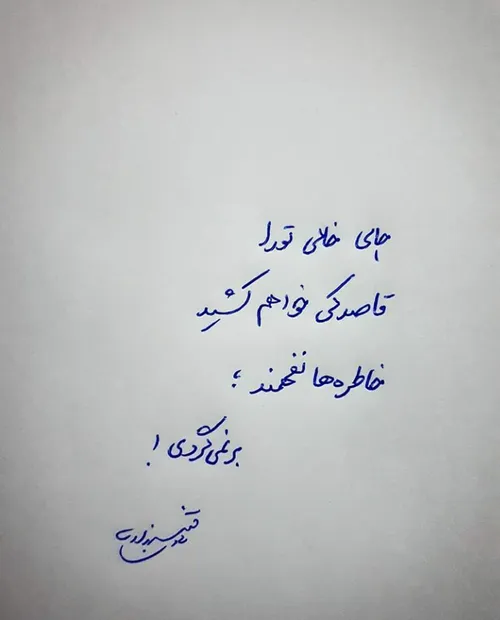 جای خالی تورا
قاصدکی خواهم کشید
خاطره‌ها نفهمند ؛
برنمی‌گردی !